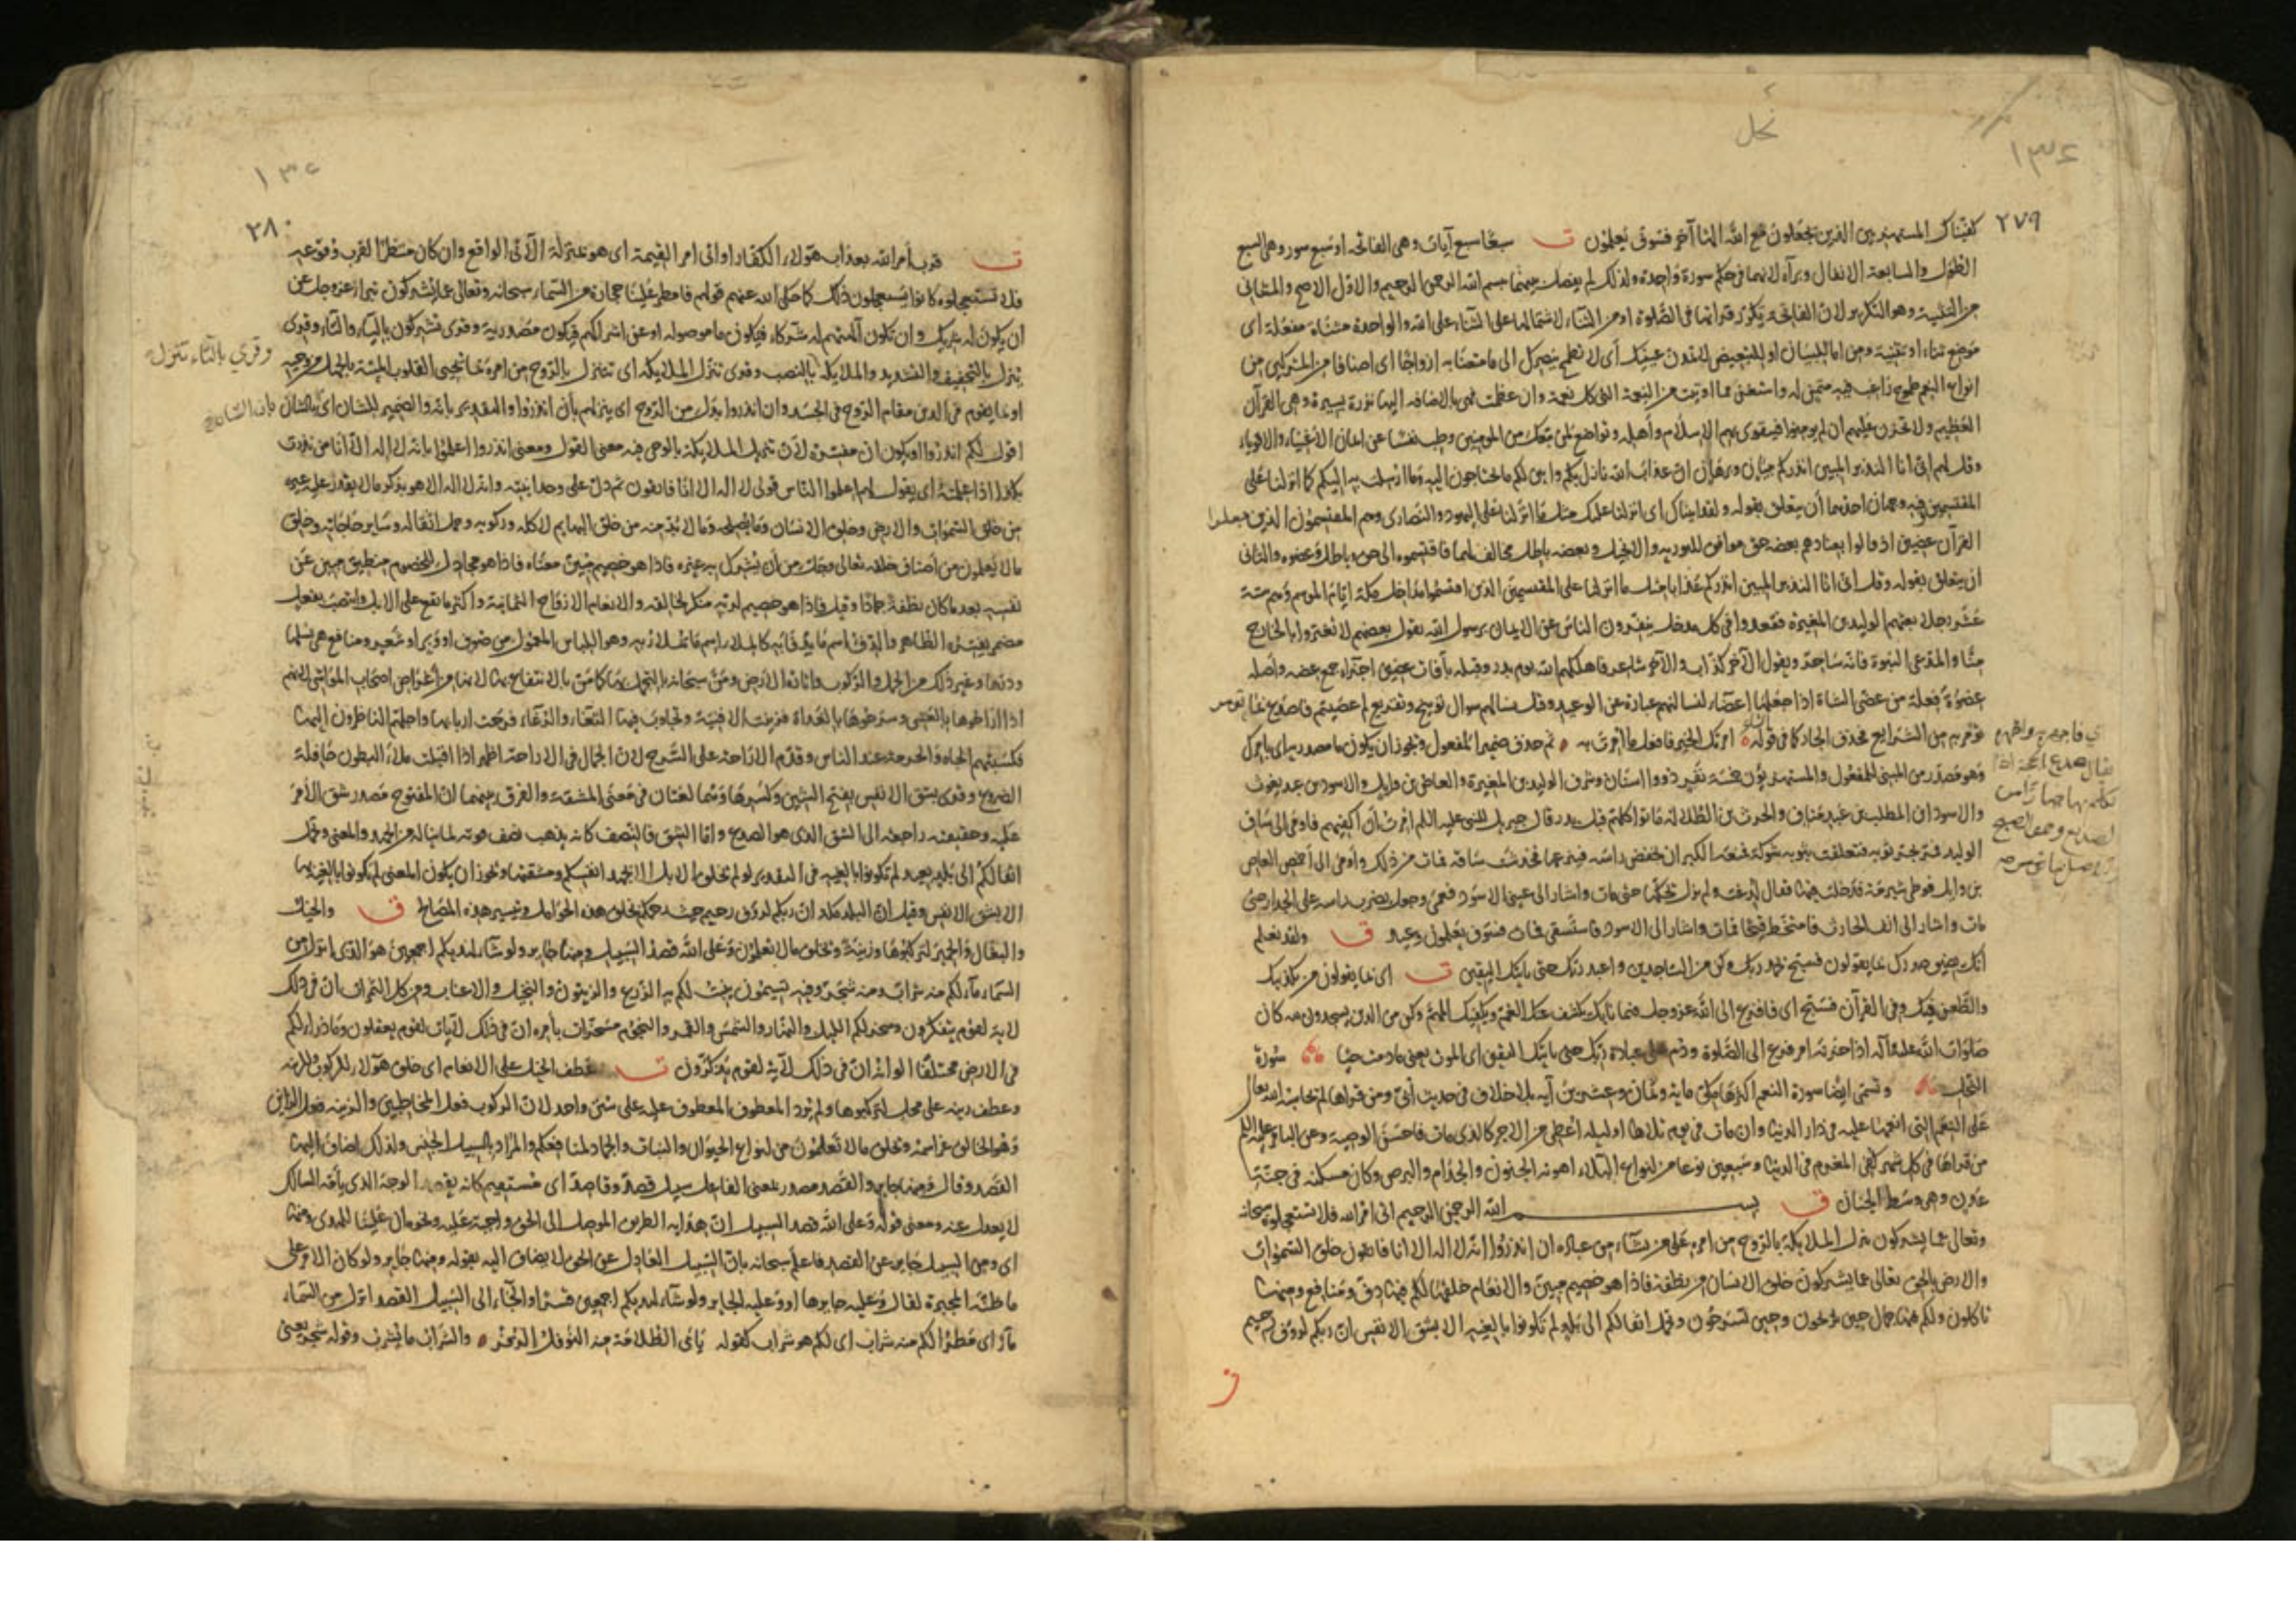 نحل
٢٧٩
كفيناك المستهزئين الذين يجعلون مع الله الها آخر فسوف يعلمون ت سبعا سبع آيات وهي الفاتحة او سبع سور وهي السبع
الطول والسابعة الانفال وبرآه لانهما في حكم سورة واحدة ولذلك لم يفصل بينهما ببسم الله الرحمن الرحيم والاول الاصح والمثاني
من التثنية وهو التكرير لان الفاتحة تكرر قرآتها في الصلوة او من الثناء لاشتمالها على الثناء على الله والواحدة مثناة مفعلة اي
موضع ثناء او تثنية ومن اما للبيان او للتبعيض لا تمدن عينيك أي لا تطمح ببصرك الى ما متعنا به ازواجا اي اصنافا من المشركين من
انواع النعم طموح راغب فيه متمن له واستغن عما اوتيت من النعمة التي كل نعمة وان عظمت فهي بالاضافة اليها نزرة يسيرة وهي القرآن
العظيم ولا تحزن عليهم ان لم يؤمنوا فيتقوى بهم الاسلام وأهله وتواضع لمن معك من المؤمنين وطب نفسا عن ايمان الأغنياء والاقوياء
وقل لهم اني انا النذير المبين انذركم ببيان وبرهان ان عذاب الله نازل بكم وابين لكم ما تحتاجون اليه وما ارسلت به اليكم كما انزلنا على
المقتسمين فيه وجهان احدهما أن يتعلق بقوله ولقد آتيناك اي انزلنا عليك مثل ما انزلنا على اليهود والنصارى وهم المقتسمون الذين جعلوا
القرآن عضين اذ قالوا بعنادهم بعضه حق موافق للتورية والانجيل وبعضه باطل مخالف لهما فاقتسموه الى حق وباطل وعضوه والثاني
ان يتعلق بقوله وقل اني انا النذير المبين انذركم عذابا مثل ما انزلنا على المقتسمين الذين اقتسموا مداخل مكة ايام الموسم وهم ستة
عشر رجلا بعثهم الوليد بن المغيرة فقعدوا في كل مدخل ينفرون الناس عن الايمان برسول الله يقول بعضهم لا تغتروا بالخارج
منا والمدعي النبوة فانه ساحر ويقول الآخر كذاب والآخر شاعر فاهلكهم الله يوم بدر وقبله بآفات عضين اجزاء جمع عضه وأصله
عضوة فعلة من عضى الشاة اذا جعلها اعضاء لنسألنهم عبارة عن الوعيد وقيل نسالهم سوال توبيخ وتقريع لم عصيتم فاصدع بما تومر
تؤمر به من الشرايع فحذف الجار كما في قوله امرتك الخير فافعل ما أمرت به ثم حذف ضمير المفعول ويجوز ان يكون ما مصدرية اي بامرك
وهو مصدر من المبني للمفعول والمستهزئون خمسة نفير ذووا اسنان وشرف الوليد بن المغيرة والعاص بن وايل والاسود بن عبد يغوث
والاسود بن المطلب بن عبد مناف والحرث بن الطلاطلة ماتوا كلهم قبل بدر قال جبريل للنبي عليه السلم امرت أن أكفيهم فاومى الى ساق
الوليد فمر بجر ثوبه فتعلقت بثوبه شوكة فمنعه الكبر ان يخفض راسه فينزعها فخدشت ساقه فمات من ذلك وأومى الى أخمص العاص
بن وايل فوطي شبرقة فدخلت فيها فقال لدغت ولم يزل يحكها حتى مات واشار الى عيني الاسود فعمي وجعل يضرب راسه على الجدار حتى
مات واشار الى انف الحارث فامتخط قيحا فمات واشار الى الاسود فاستسقى فمات فسوف يعلمون وعيد ق ولقد نعلم
انك يضيق صدرك بما يقولون فسبح بحمد ربك وكن من الساجدين واعبد ربك حتى ياتيك اليقين ت اي بما يقولون من تكذيبك
والطعن فيك وفي القرآن فسبح اي فافزع الى الله عز وجل فيما نابك يكشف عنك الغم ويكفيك المهم وكن من الذين يسجدون له كان
صلوات الله عليه وآله اذا حزبه امر فزع الى الصلوة ودم على عبادة ربك حتى ياتيك اليقين اي الموت يعني ما دمت حيا سورة
النحل وتسمى ايضا سورة النعم اكثرها مكي ماية وثمان وعشرون آية بلا خلاف في حديث أبي ومن قراها لم يحاسبه الله تعالى
على النعم التي انعمها عليه في دار الدنيا وان مات في يوم تلاها او ليله اعطي من الاجر كالذي مات فاحسن الوصية وعن الباقر عليه السلم
من قراها في كل شهر كفي المغرم في الدنيا وسبعين نوعا من انواع البلاء اهونه الجنون والجذام والبرص وكان مسكنه في جنة
عدن وهي وسط الجنان ق بسم الله الرحمن الرحيم اتى امر الله فلا تستعجلوه سبحانه
وتعالى عما يشركون ينزل الملايكة بالروح من امره على من يشاء من عباده ان انذروا انه لا اله الا انا فاتقون خلق السموات
والارض بالحق تعالى عما يشركون خلق الانسان من نطفة فاذا هو خصيم مبين والانعام خلقها لكم فيها دفء ومنافع ومنها
تاكلون ولكم فيها جمال حين تريحون وحين تسرحون وتحمل اثقالكم الى بلد لم تكونوا بالغيه الا بشق الانفس ان ربكم لرؤف رحيم
اي فاجهر به واظهره
يقال صدع بالحجة اذا
تكلم بها جهارا من
الصديع وهو الصبح
٢٨٠
ت قرب أمر الله بعذاب هؤلاء الكفار او اتى امر القيمة اي هو بمنزلة الآتي الواقع وان كان منتظرا لقرب وقوعه
فلا تستعجلوه كانوا يستعجلون ذلك كما حكى الله عنهم قولهم فامطر علينا حجارة من السماء سبحانه وتعالى عما يشركون تبرأ عز وجل عن
ان يكون له شريك وان تكون آلهتهم له شركاء فيكون ما موصولة او عن اشراكهم فيكون مصدرية وقرى تشركون بالياء والتاء وقرى
ينزل بالتخفيف والتشديد والملايكة بالنصب وقرى تنزل الملايكة اي تتنزل بالروح من امره بما يحيي القلوب الميتة بالجهل من وحيه
او بما يقوم في الدين مقام الروح في الجسد وان انذروا بدل من الروح اي ينزلهم بأن انذروا والتقدير بانه والضمير للشان اي بان الشان
اقول لكم انذروا او يكون ان مفسرة لان تنزيل الملايكة بالوحي فيه معنى القول ومعنى انذروا اعلموا بانه لا اله الا أنا من نذرت
بكذا اذا علمته اي يقول لهم اعلموا الناس قولي لا اله الا انا فاتقون ثم دل على وحدانيته وانه لا اله الا هو بذكر ما لا يقدر عليه غيره
من خلق السموات والارض وخلق الانسان وما يصلحه وما لا بد منه من خلق البهايم لاكله وركوبه وحمل اثقاله وساير حاجاته وخلق
ما لا يعلمون من أصناف خلقه تعالى وجل من أن يشرك به غيره فاذا هو خصيم مبين معناه فاذا هو مجادل للخصوم منطيق مبين عن
نفسه بعد ما كان نطفة جمادا وقيل فاذا هو خصيم لربه منكر لخالقه والانعام الازواج الثمانية واكثر ما تقع على الابل وانتصب بفعل
مضمر يفسره الظاهر والدفء اسم ما يدفأ به كالملاء اسم ما يملأ به وهو اللباس المعمول من صوف او وبر او شعر ومنافع هي نسلها
ودرها وغير ذلك من الحمل والركوب واثارة الارض ومن سبحانه بالتجمل بها كما من بالانتفاع بها لانها من أغراض اصحاب المواشي لانهم
اذا اراحوها بالعشي وسرحوها بالغداة فزينت الافنية وتجاوب فيها الثغاء والرغاء فرحت اربابها واجلتهم الناظرون اليها
فكسبتهم الجاه والحرمة عند الناس وقدم الاراحة على التسريح لان الجمال في الاراحة اظهر اذا اقبلت ملاء البطون حافلة
الضروع وقرى بشق الانفس بفتح الشين وكسرها وهما لغتان في معنى المشقة والفرق بينهما ان المفتوح مصدر شق الأمر
عليه وحقيقته راجعة الى الشق الذي هو الصدع واما الشق فالنصف كانه يذهب نصف قوته لما يناله من الجهد والمعنى وتحمل
اثقالكم الى بلد بعيد لم تكونوا بالغيه في التقدير لو لم تخلق الابل الا بجهد انفسكم ومشقتها ويجوز ان يكون المعنى لم تكونوا بالغيه بها
الا بشق الانفس وقيل ان البلد مكة ان ربكم لرؤف رحيم حيث رحمكم بخلق هذه الحوامل وتيسير هذه المصالح ق والخيل
والبغال والحمير لتركبوها وزينة ويخلق ما لا تعلمون وعلى الله قصد السبيل ومنها جاير ولو شاء لهديكم اجمعين هو الذي انزل من
السماء ماء لكم منه شراب ومنه شجر فيه تسيمون ينبت لكم به الزرع والزيتون والنخيل والاعناب ومن كل الثمرات ان في ذلك
لاية لقوم يتفكرون وسخر لكم الليل والنهار والشمس والقمر والنجوم مسخرات بأمره ان في ذلك لآيات لقوم يعقلون وما ذرأ لكم
في الارض مختلفا الوانه ان في ذلك لآية لقوم يذكرون ت عطف الخيل على الانعام اي خلق هؤلاء للركوب والزينة
وعطف زينة على محل لتركبوها ولم يرد المعطوف والمعطوف عليه على سنن واحد لان الركوب فعل المخاطبين والزينة فعل الزاين
وهو الخالق عز اسمه ويخلق ما لا تعلمون من انواع الحيوان والنبات والجماد لمنافعكم والمراد بالسبيل الجنس ولذلك اضاف اليها
القصد وقال ومنها جاير والقصد مصدر بمعنى الفاعل سبيل قصد وقاصد أي مستقيم كانه يقصد الوجه الذي يأمه السالك
لا يعدل عنه ومعنى قوله وعلى الله قصد السبيل ان هداية الطريق الموصل الى الحق واجبة عليه ونحوه ان علينا للهدى ومنها
اي ومن السبيل جاير عن القصد فاعلم سبحانه بان السبيل العادل عن الحق لا يضاف اليه بقوله ومنها جاير ولو كان الامر على
ما ظنه المجبرة لقال وعليه جايرها او وعليه الجاير ولو شاء لهديكم اجمعين قسرا والجاء الى السبيل القصد انزل من السماء
ماء اي مطرا لكم منه شراب اي لكم هو شراب كقوله يأبى الظلامة منه النوفل الزفر والشراب ما يشرب وقوله شجر يعني
وقري بالتاء تنزل